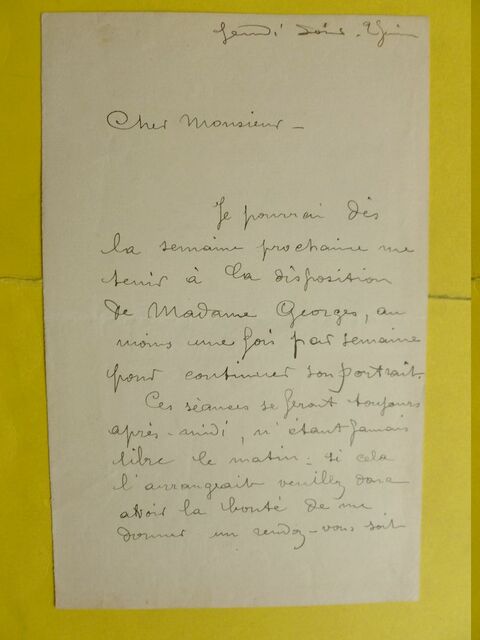 Jeudi soir. Juin
Cher Monsieur -
Je pourrai dès
la semaine prochaine me
tenir à la disposition
de Madame Georges, au
moins une fois par semaine
pour continuer son portrait.
Ces séances se feront toujours
après-midi, n'étant jamais
libre le matin. si cela
l'arrangeait veuillez donc
avoir la bonté de me
donner un rendez-vous soit